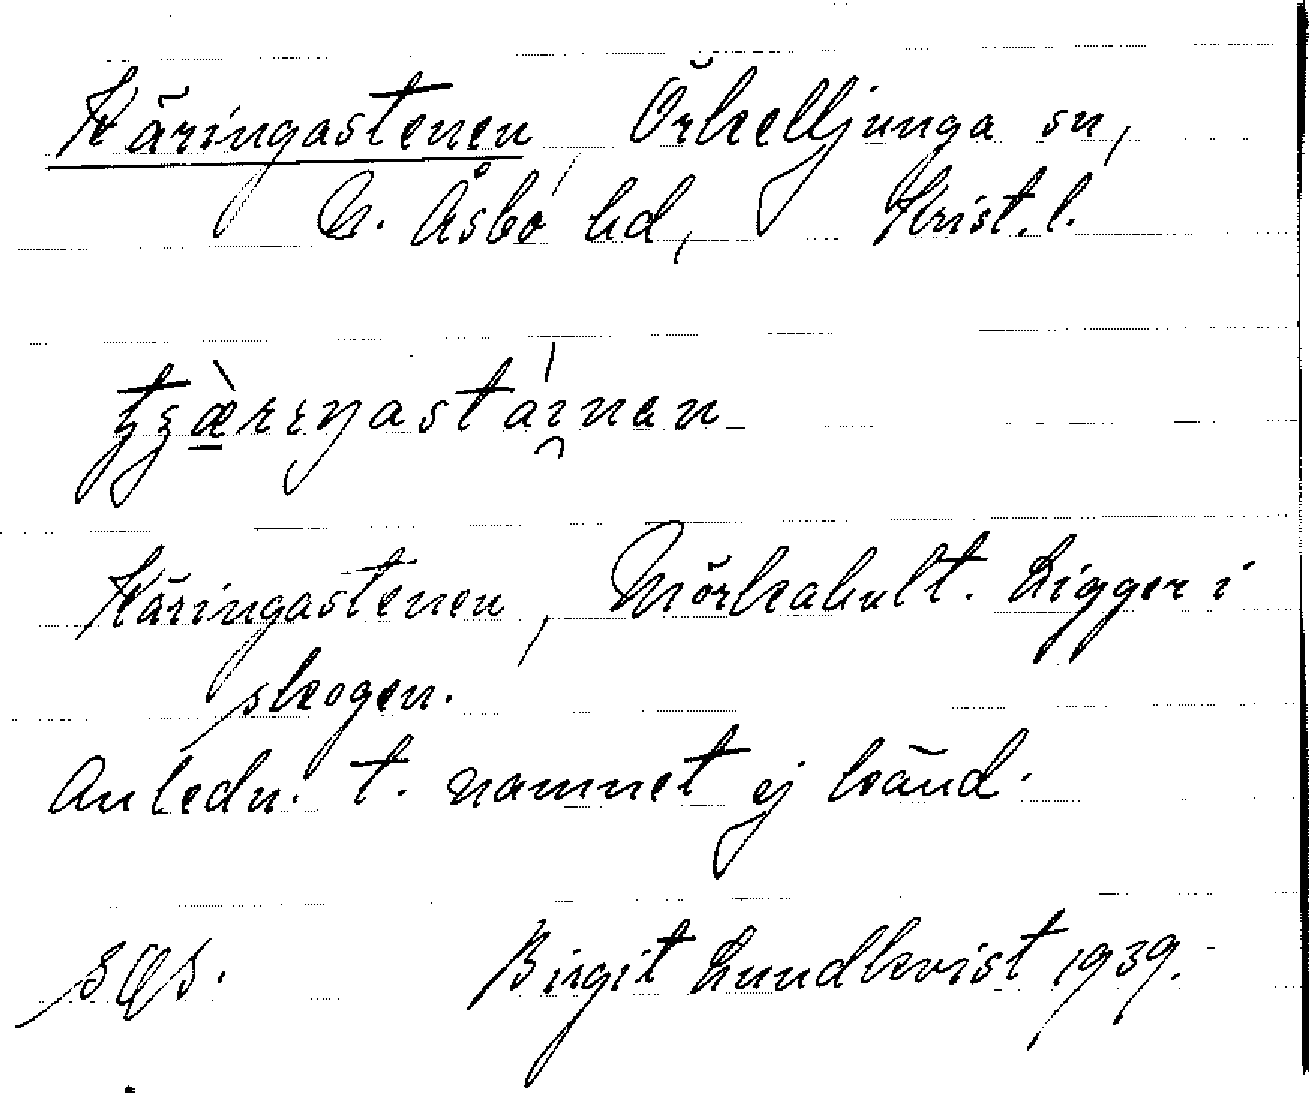 Käringastenen, Örkelljunga sn,
N. Åsbo hd, Krist. l.
Käringastenen, Mörkahult. Ligger i
skogen.
Anledn. t. namnet ej känd.
Birgit Lundkvist 1939.